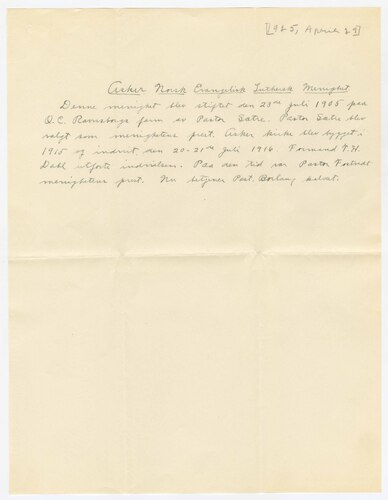 [1925, April 29]
Asker Norsk Evangelisk Luthersk Menighet.
Denne menighet blev stiftet den 23de juli 1905 paa
O.C. farm av Pastor Satre. Pastor Satre blev
valgt som menighetens prest. Asker kirke blev bygget
1915 og indviet den 20-21de juli 1916. Formand T.H.
Dahl utførte indvielsen. Paa den tid var Pastor
menighetens prest. Nu betjener Past. kaldet.